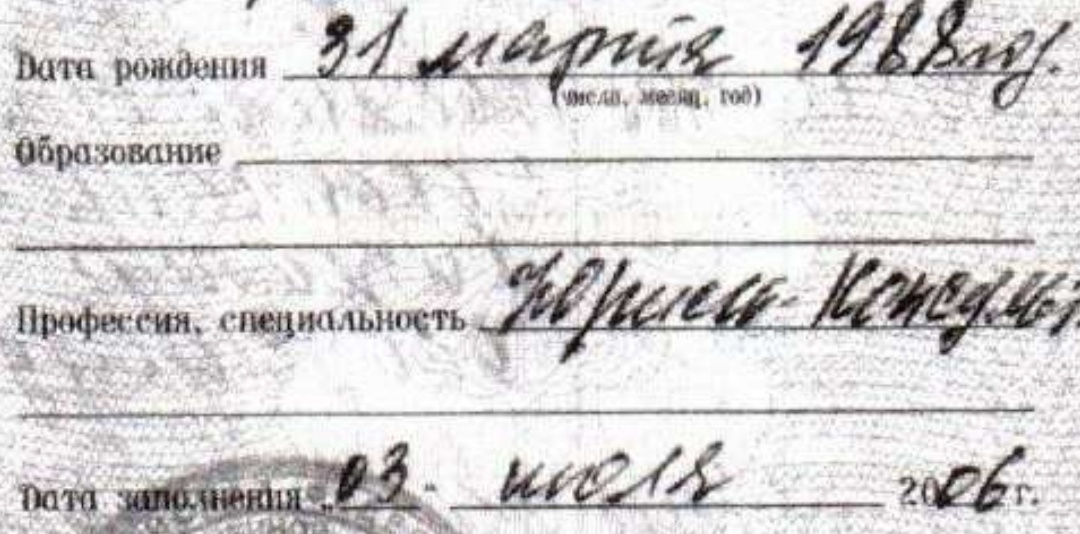 Дата рождения 31 марта 1988 год.
(число, месяц, год)
Образование
Профессия, специальность Юрист-Консульт
Дата заполнения „03 - июля 2006 г.